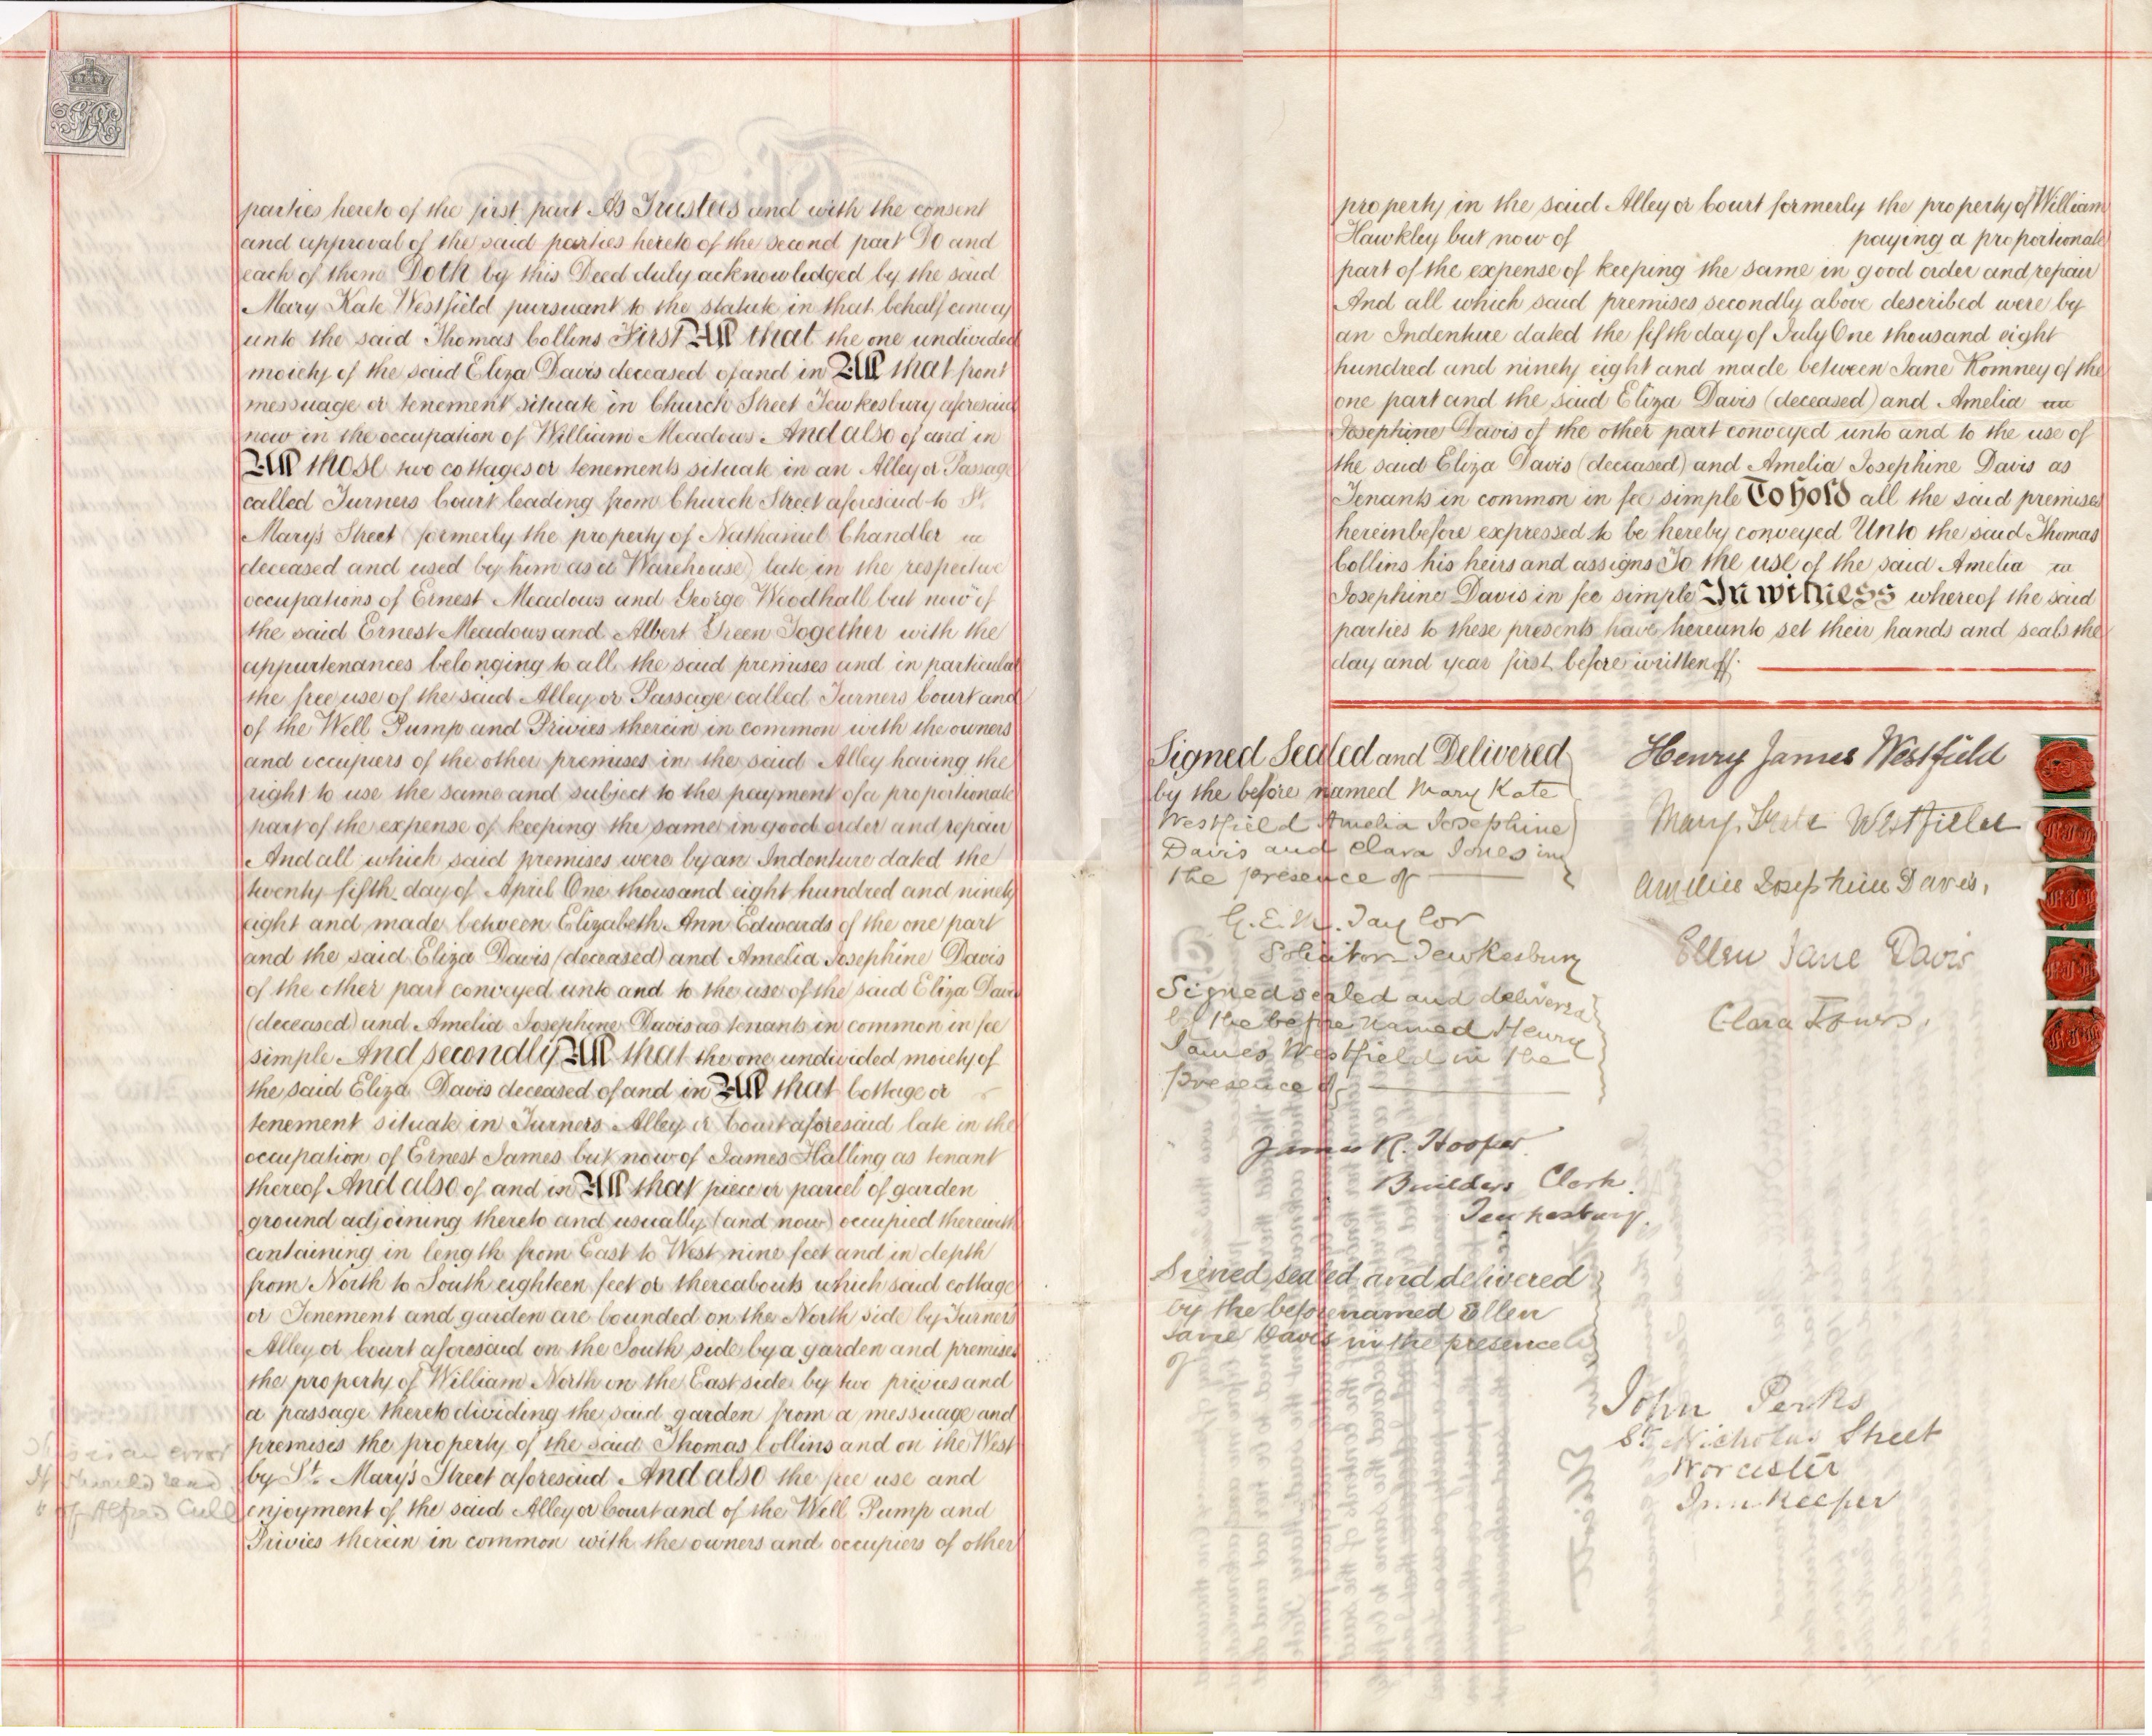 parties hereto of the first part As Trustees and with the consent
and approval of the said parties hereto of the second part Do and
each of them Doth by this Deed duly acknowledged by the said
Mary Kate Westfield pursuant to the statute in that behalf convey
unto the said Thomas Collins First All that the one undivided
moiety of the said Eliza Davis deceased of and in All that front
messuage or tenement situate in Church Street Tewkesbury aforesaid
now in the occupation of William Meadows And also of and in
All those two cottages or tenements situate in an Alley or Passage
called Turners Court leading from Church Street aforesaid to St.
Mary's Street (formerly the property of Nathaniel Chandler
deceased and used by him as a Warehouse) late in the respective
occupations of Ernest Meadows and George Woodhall but now of
the said Ernest Meadows and Albert Green Together with the
appurtenances belonging to all the said premises and in particular
the free use of the said Alley or Passage called Turners Court and
of the Well Pump and Privies therein in common with the owners
and occupiers of the other premises in the said Alley having the
right to use the same and subject to the payment of a proportionate
part of the expense of keeping the same in good order and repair
And all which said premises were by an Indenture dated the
twenty fifth day of April One thousand eight hundred and ninety
eight and made between Elizabeth Ann Edwards of the one part
and the said Eliza Davis (deceased) and Amelia Josephine Davis
of the other part conveyed unto and to the use of the said Eliza Davis
(deceased) and Amelia Josephine Davis as tenants in common in fee
simple And secondly All that the one undivided moiety of
the said Eliza Davis deceased of and in All that Cottage or
tenement situate in Turners Alley or Court aforesaid late in the
occupation of Ernest James but now of James Halling as tenant
thereof And also of and in All that piece or parcel of garden
ground adjoining thereto and usually (and now) occupied therewith
containing in length from East to West nine feet and in depth
from North to South eighteen feet or thereabouts which said cottage
or Tenement and garden are bounded on the North side by Turners
Alley or Court aforesaid on the South side by a garden and premises
the property of William North on the East side by two privies and
a passage thereto dividing the said garden from a messuage and
premises the property of the said Thomas Collins and on the West
by St. Mary's Street aforesaid And also the free use and
enjoyment of the said Alley or Court and of the Well Pump and
Privies therein in common with the owners and occupiers of other
is an error
It should read
" of Alfred Cull
property in the said Alley or Court formerly the property of William
Hawkley but now of paying a proportionate
part of the expense of keeping the same in good order and repair
And all which said premises secondly above described were by
an Indenture dated the fifth day of July One thousand eight
hundred and ninety eight and made between Jane Romney of the
one part and the said Eliza Davis (deceased) and Amelia
Josephine Davis of the other part conveyed unto and to the use of
the said Eliza Davis (deceased) and Amelia Josephine Davis as
Tenants in common in fee simple To hold all the said premises
hereinbefore expressed to be hereby conveyed Unto the said Thomas
Collins his heirs and assigns To the use of the said Amelia
Josephine Davis in fee simple In witness whereof the said
parties to these presents have hereunto set their hands and seals the
day and year first before written
Signed Sealed and Delivered
by the before named Mary Kate
Westfield Amelia Josephine
Davis and Clara Jones in
the presence of
Taylor
Solicitor Tewkesbury
Henry James Westfield
Mary Kate Westfield
Amelia Josephine Davis,
Ellen Jane Davis
Clara Jones,
Signed sealed and delivered
by the before named Henry
James Westfield in the
presence of
James R. Hooper
Builders Clerk.
Tewkesbury.
Signed sealed and delivered
by the beforenamed Ellen
Jane Davis in the presence
of
John Perks
St Nicholas Street
Worcester
Innkeeper